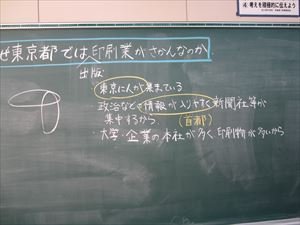 考えを積極的に伝えよう
ぜ東京都では印刷業がさかんなのか
出版
・東京に人が集まっている
・政治などの情報が入りやすく新聞社等が
集中するから (首都)
・大学・企業の本社が多く印刷物が多いから